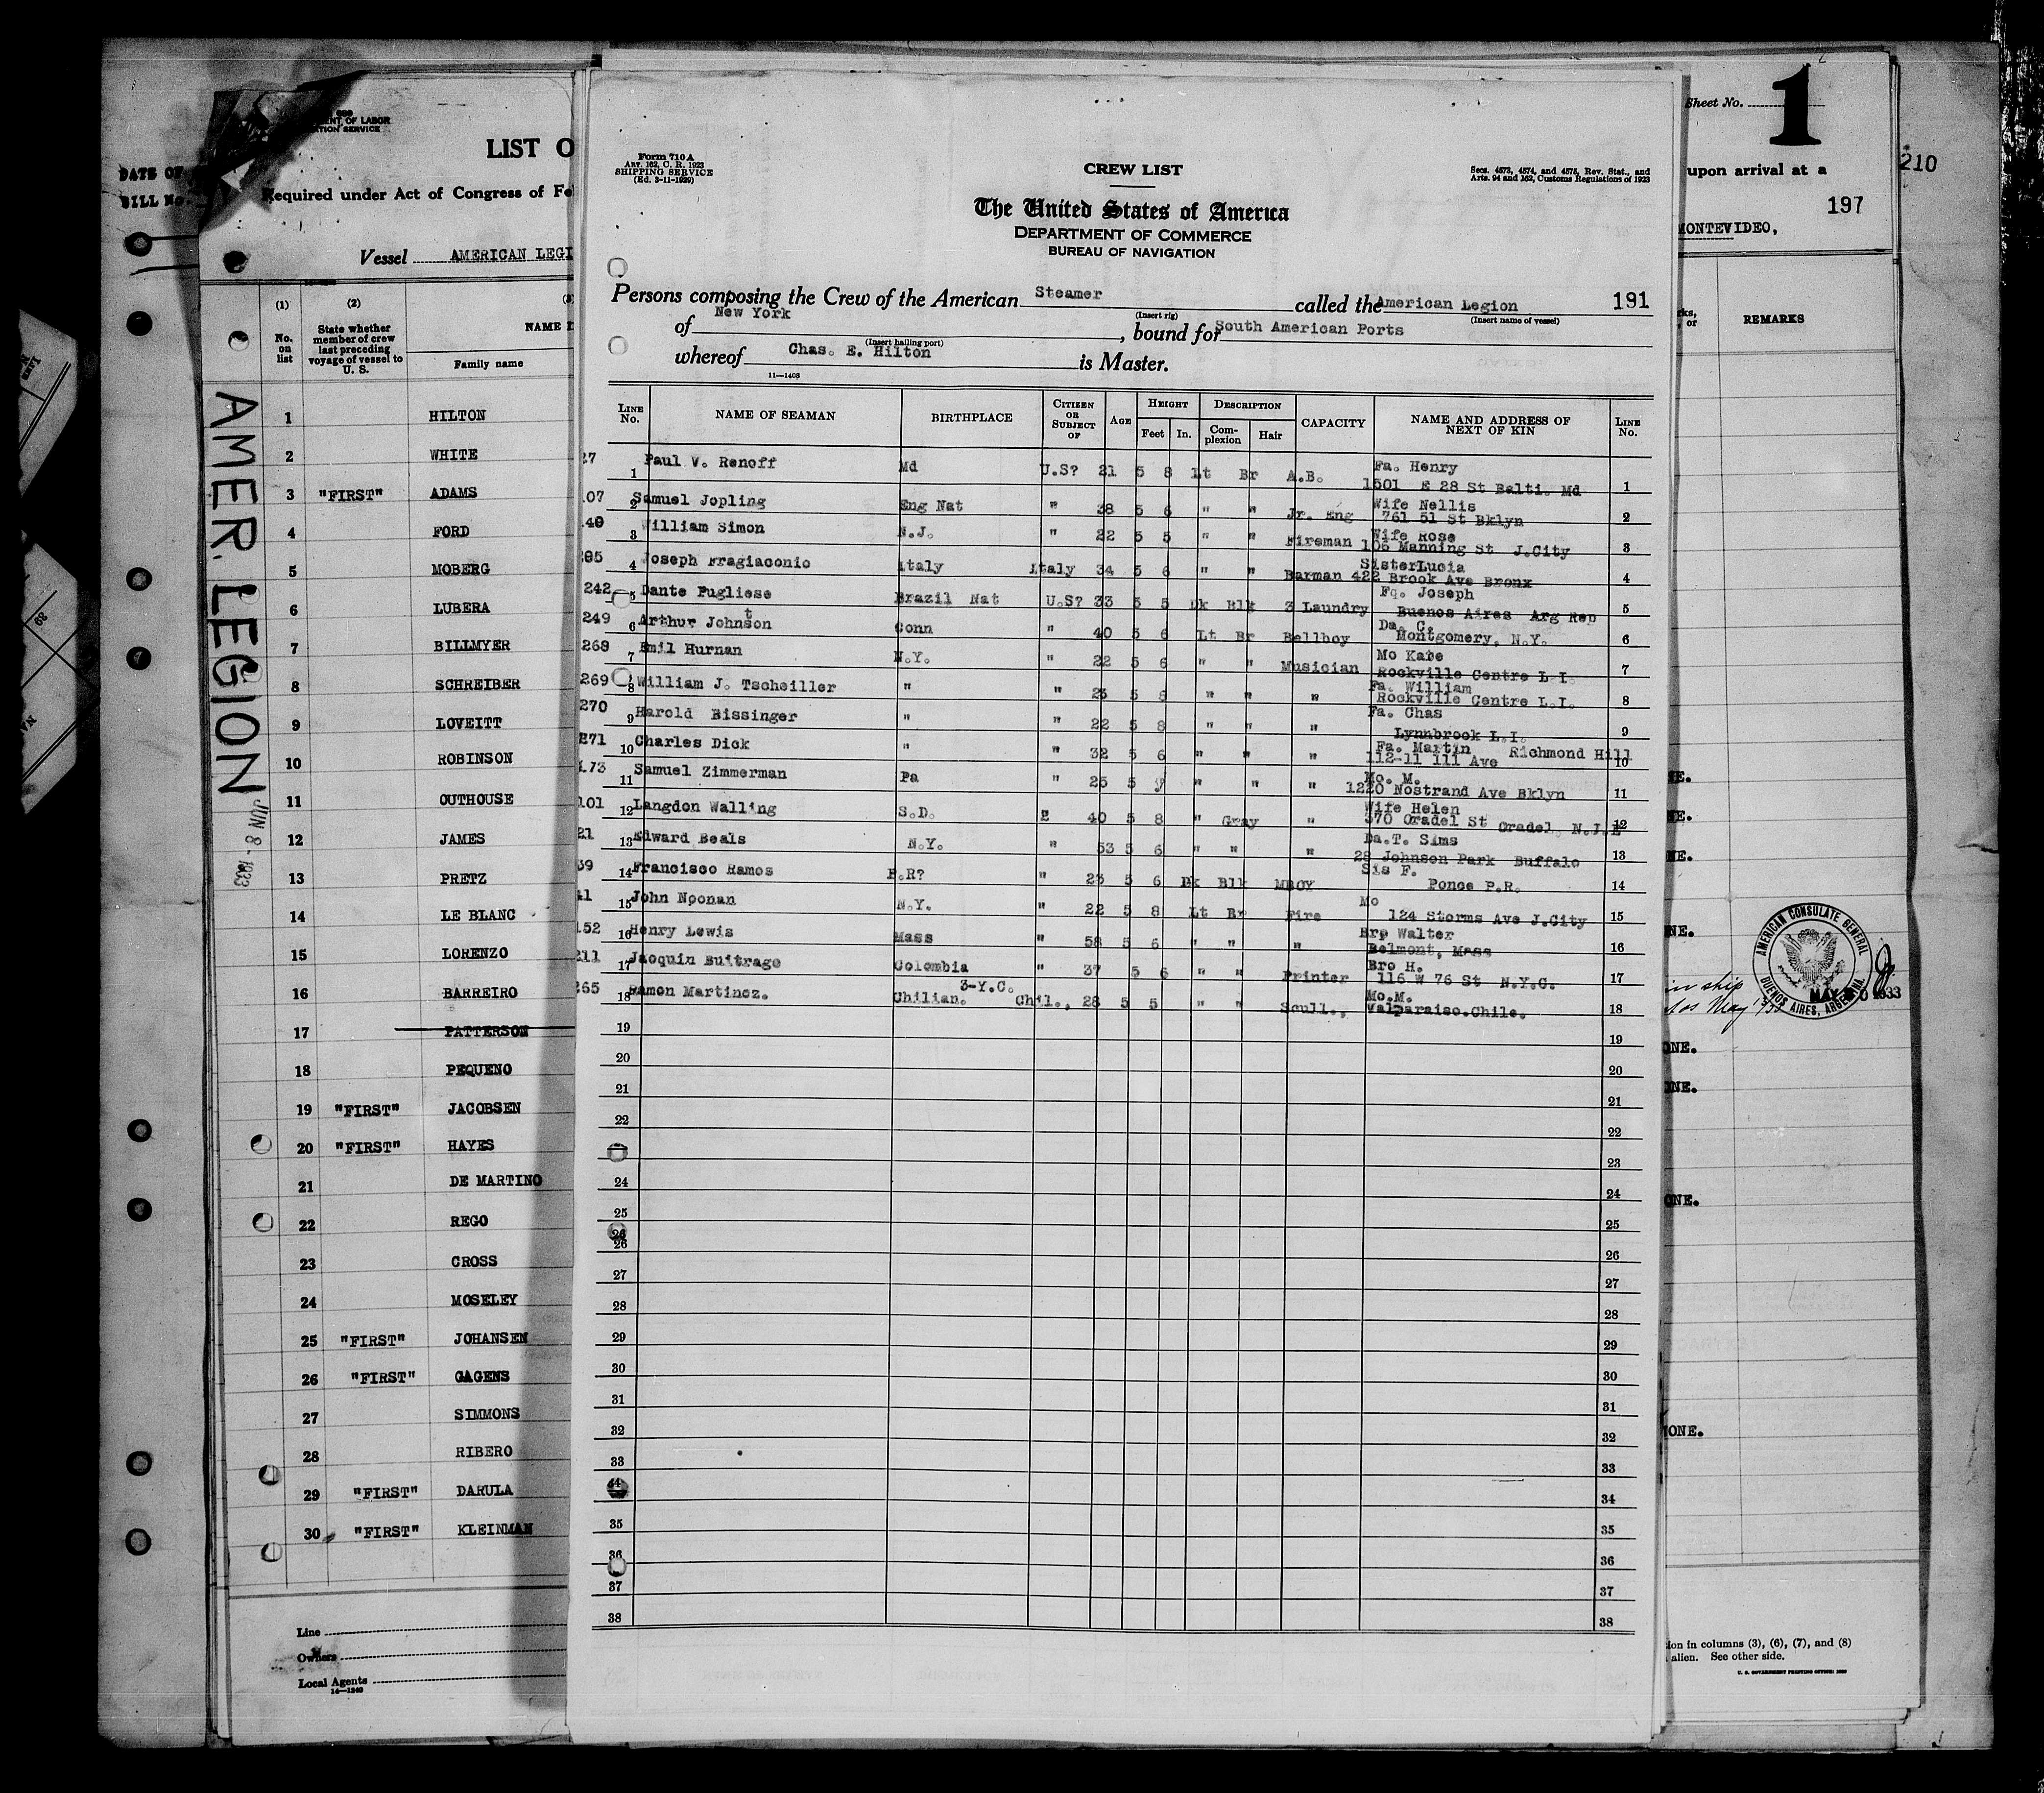 DATE OF
BILL No.
NT OF LABOR
TION SERVICE
LIST O
Required under Act of Congress of Fe
Vessel AMERICAN LEGI
(1) (2) (3
No. on list
State whether member of crew last preceding voyage of vessel to U. S.
NAME I
Family name
AMER. LEGION
JUN 8 - 1933
1 HILTON
2 WHITE
3 "FIRST" ADAMS
4 FORD
5 MOBERG
6 LUBERA
7 BILLMYER
8 SCHREIBER
9 LOVEITT
10 ROBINSON
11 OUTHOUSE
12 JAMES
13 PRETZ
14 LE BLANC
15 LORENZO
16 BARREIRO
17 PATTERSON
18 PEQUENO
19 "FIRST" JACOBSEN
20 "FIRST" HAYES
21 DE MARTINO
22 REGO
23 CROSS
24 MOSELEY
25 "FIRST" JOHANSEN
26 "FIRST" GAGENS
27 SIMMONS
28 RIBERO
29 "FIRST" DARULA
30 "FIRST" KLEINMAN
Line
Owners
Local Agents
14—1240
Form 710 A
Art. 162, C. R. 1923
SHIPPING SERVICE
(Ed. 3-11-1929)
CREW LIST
Secs. 4573, 4574, and 4575, Rev. Stat., and
Arts. 94 and 162, Customs Regulations of 1923
The United States of America
DEPARTMENT OF COMMERCE
BUREAU OF NAVIGATION
Persons composing the Crew of the American Steamer called the American Legion 191
(Insert rig) (Insert name of vessel)
of New York, bound for South American Ports
(Insert hailing port)
whereof Chas. E. Hilton is Master.
11—1403
LINE No. NAME OF SEAMAN BIRTHPLACE CITIZEN OR SUBJECT OF AGE HEIGHT Feet In. DESCRIPTION Complexion Hair CAPACITY NAME AND ADDRESS OF NEXT OF KIN LINE No.
27 1 Paul V. Renoff Md U.S? 21 5 8 Lt Br A.B. Fa. Henry
1501 E 28 St Balti. Md 1
107 2 Samuel Jopling Eng Nat " 38 5 6 " " Jr. Eng Wife Nellis
761 51 St Bklyn 2
140 3 William Simon N.J. " 22 5 5 " " Fireman Wife Rose
106 Manning St J.City 3
295 4 Joseph Fragiaconio Italy Italy 34 5 6 " " Barman SisterLucia
422 Brook Ave Bronx 4
242 5 Dante Pugliese Brazil Nat U.S? 33 5 5 Dk Blk 3 Laundry Fq. Joseph
Buenos Aires Arg Rep 5
249 6 Arthur Johnston Conn " 40 5 6 Lt Br Bellboy Da. C.
Montgomery, N.Y. 6
268 7 Emil Hurnan N.Y. " 22 5 6 " " Musician Mo Kate
Rockville Centre L.I. 7
269 8 William J. Tscheiller " " 23 5 8 " " " Fa. William
Rockville Centre L.I. 8
270 9 Harold Bissinger " " 22 5 8 " " " Fa. Chas
Lynnbrook L.I. 9
271 10 Charles Dick " " 32 5 6 " " " Fa. Martin Richmond Hill
112-11 111 Ave 10
173 11 Samuel Zimmerman Pa " 25 5 9 " " " Mo. M.
1220 Nostrand Ave Bklyn 11
101 12 Langdon Walling S.D. 2 40 5 8 " Gray " Wife Helen
370 Oradel St Oradel, N.J. 12
21 13 Edward Beals N.Y. " 53 5 6 " " " Da.T. Sims
28 Johnson Park Buffalo 13
39 14 Francisco Ramos P.R? " 23 5 6 Dk Blk MBOY Sis F.
Ponce P.R. 14
41 15 John Noonan N.Y. " 22 5 8 Lt Br Fire Mo
124 Storms Ave J.City 15
152 16 Henry Lewis Mass " 58 5 6 " " " Bro Walter
Belmont, Mass 16
211 17 Jaoquin Buitrago Colombia " 37 5 6 " " Printer Bro H.
116 W 76 St N.Y.C. 17
3-Y.C.
265 18 Ramon Martinez. Chilian. Chil., 28 5 5 " " Scull., Mo.M.
Valparaiso.Chile. 18
19 19
20 20
21 21
22 22
23
24 24
25 25
26 26
27 27
28 28
29 29
30 30
31 31
32 32
33 33
34
35 35
36 36
37 37
38 38
Sheet No. 1
upon arrival at a
210
197
MONTEVIDEO,
REMARKS
NE.
NE.
ONE.
ONE.
ONE.
NONE.
AMERICAN CONSULATE GENERAL
BUENOS AIRES, ARGENTINA
ship
May
ion in columns (3), (6), (7), and (8)
alien. See other side.
U. S. GOVERNMENT PRINTING OFFICE